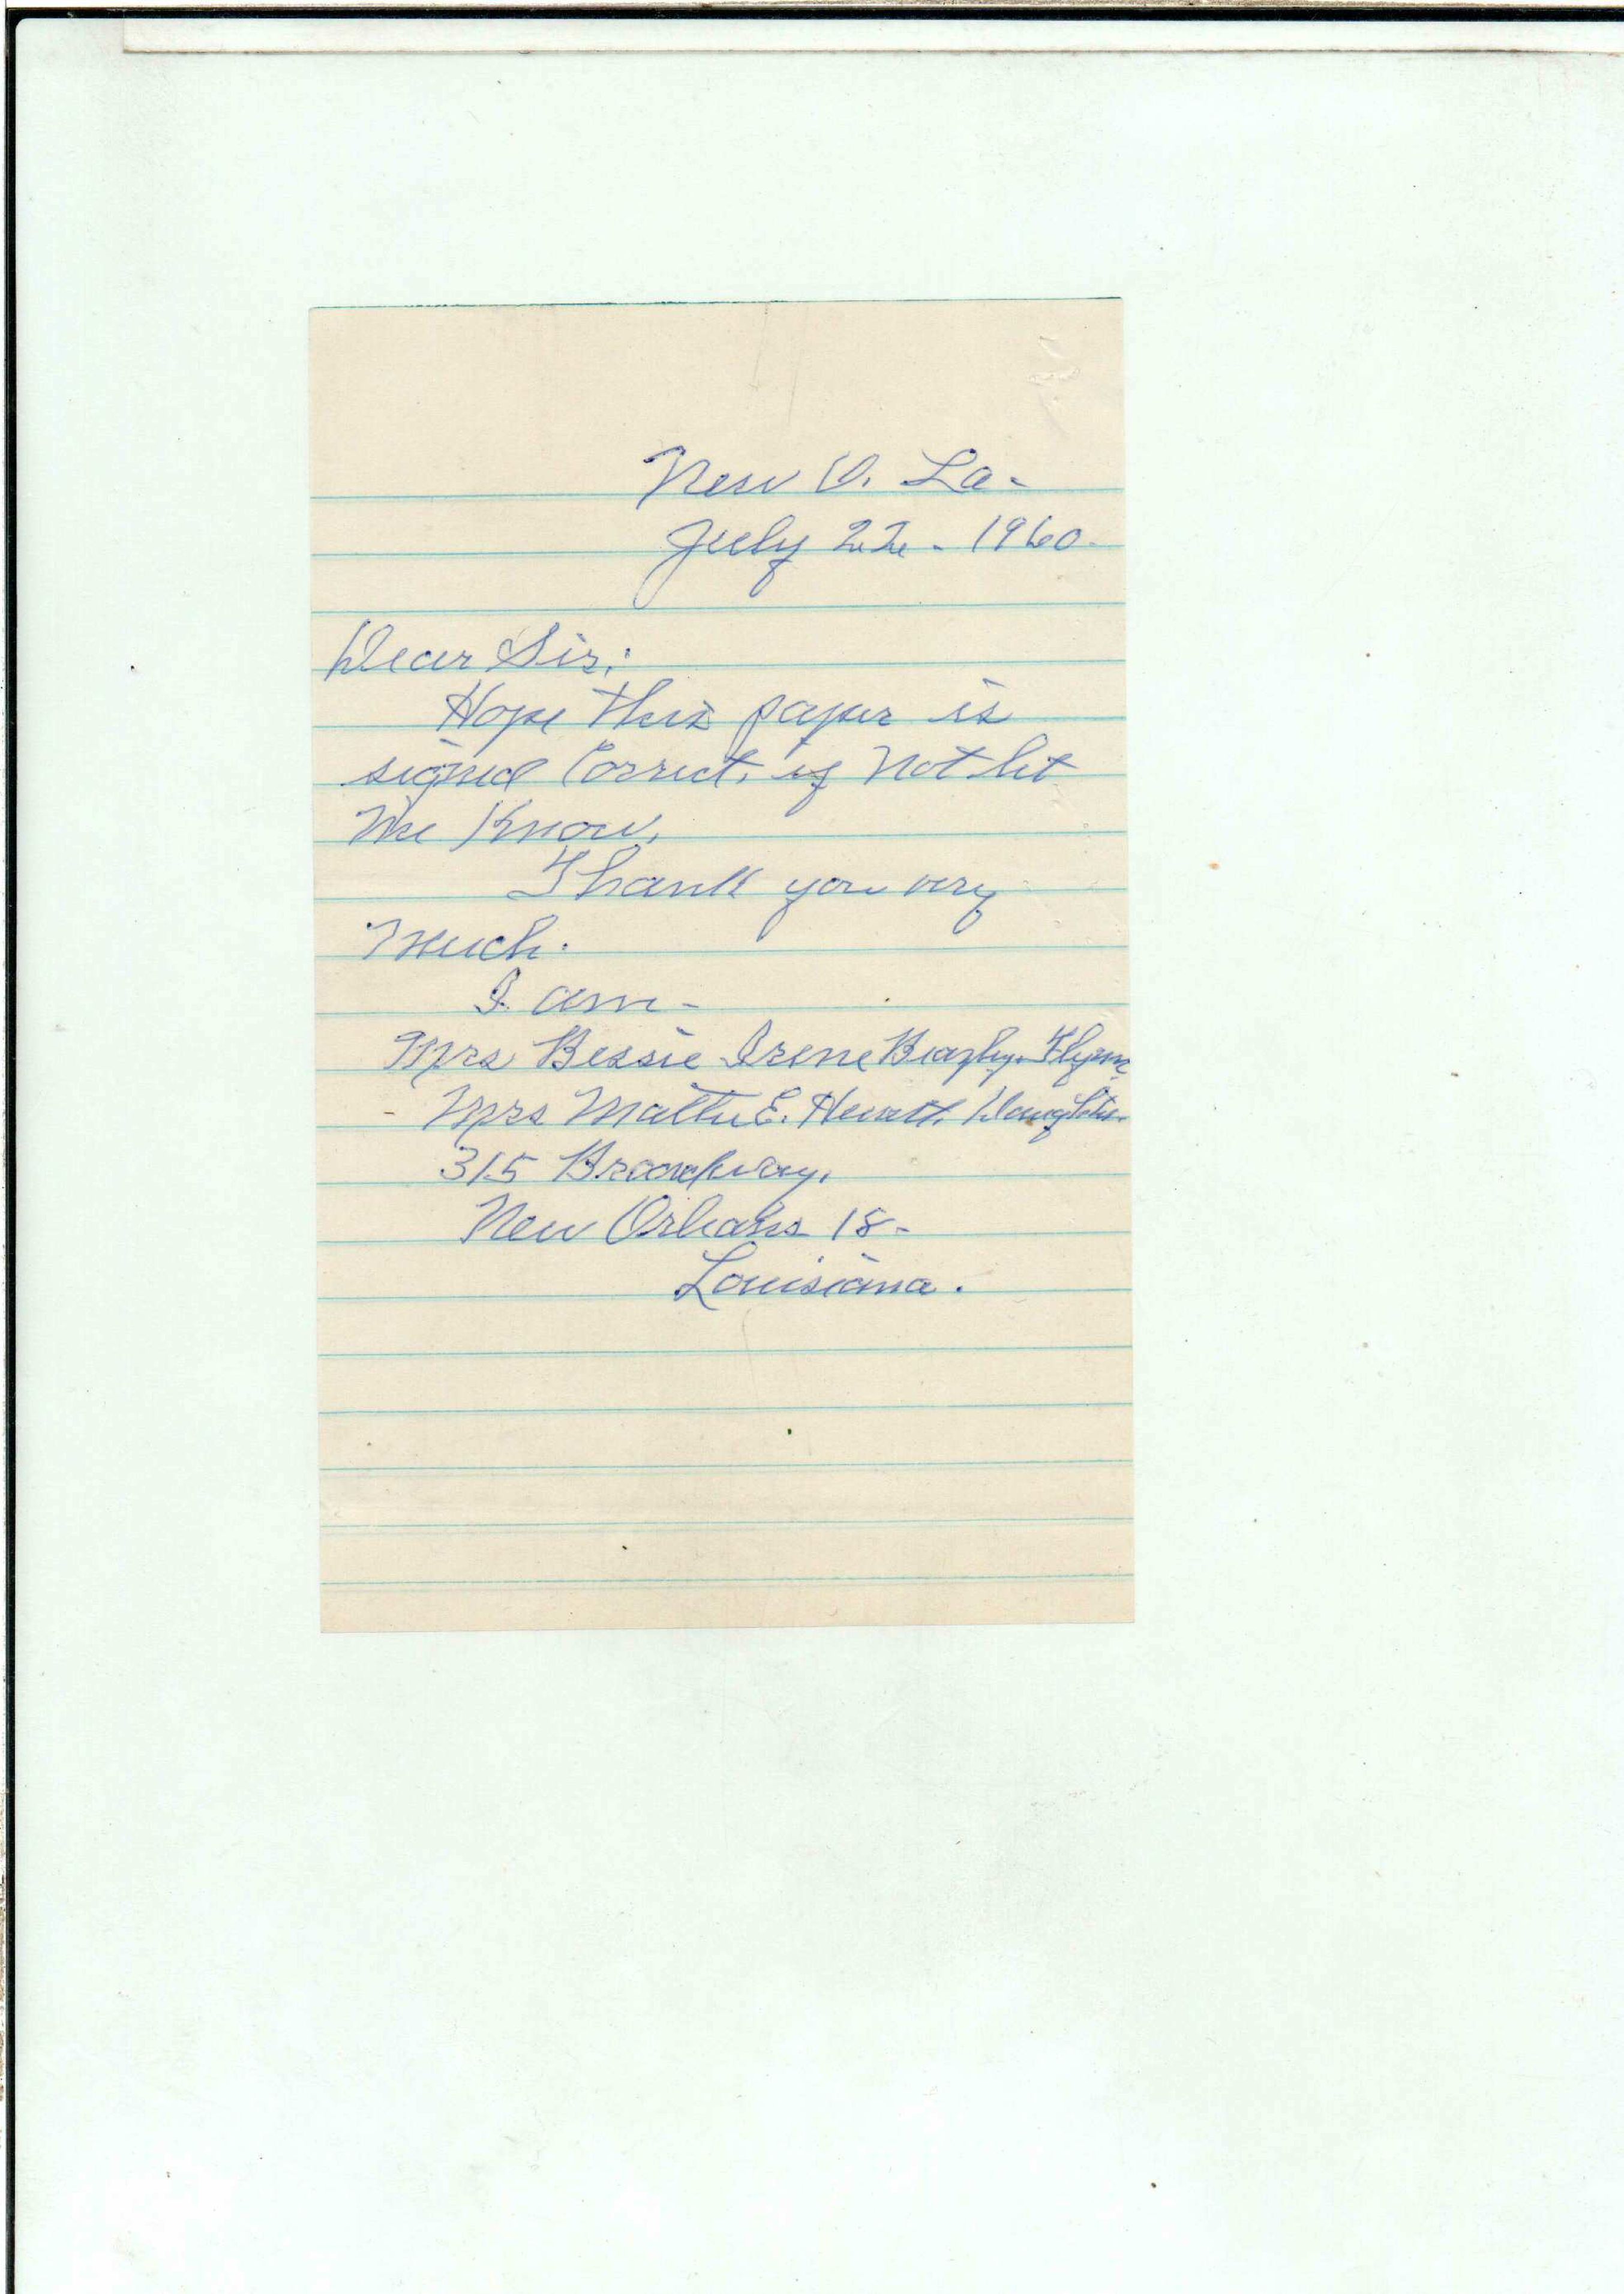 New O. La-
July 22 - 1960.
Dear Sir:
Hope this paper is
signed Correct, if Not let
Me Know.
Thank you very
Much.
I am -
Mrs Bessie Irene Flynn
- Mrs Mattie E. Daughter
315 Broadway.
New Orleans 18-
Louisiana.